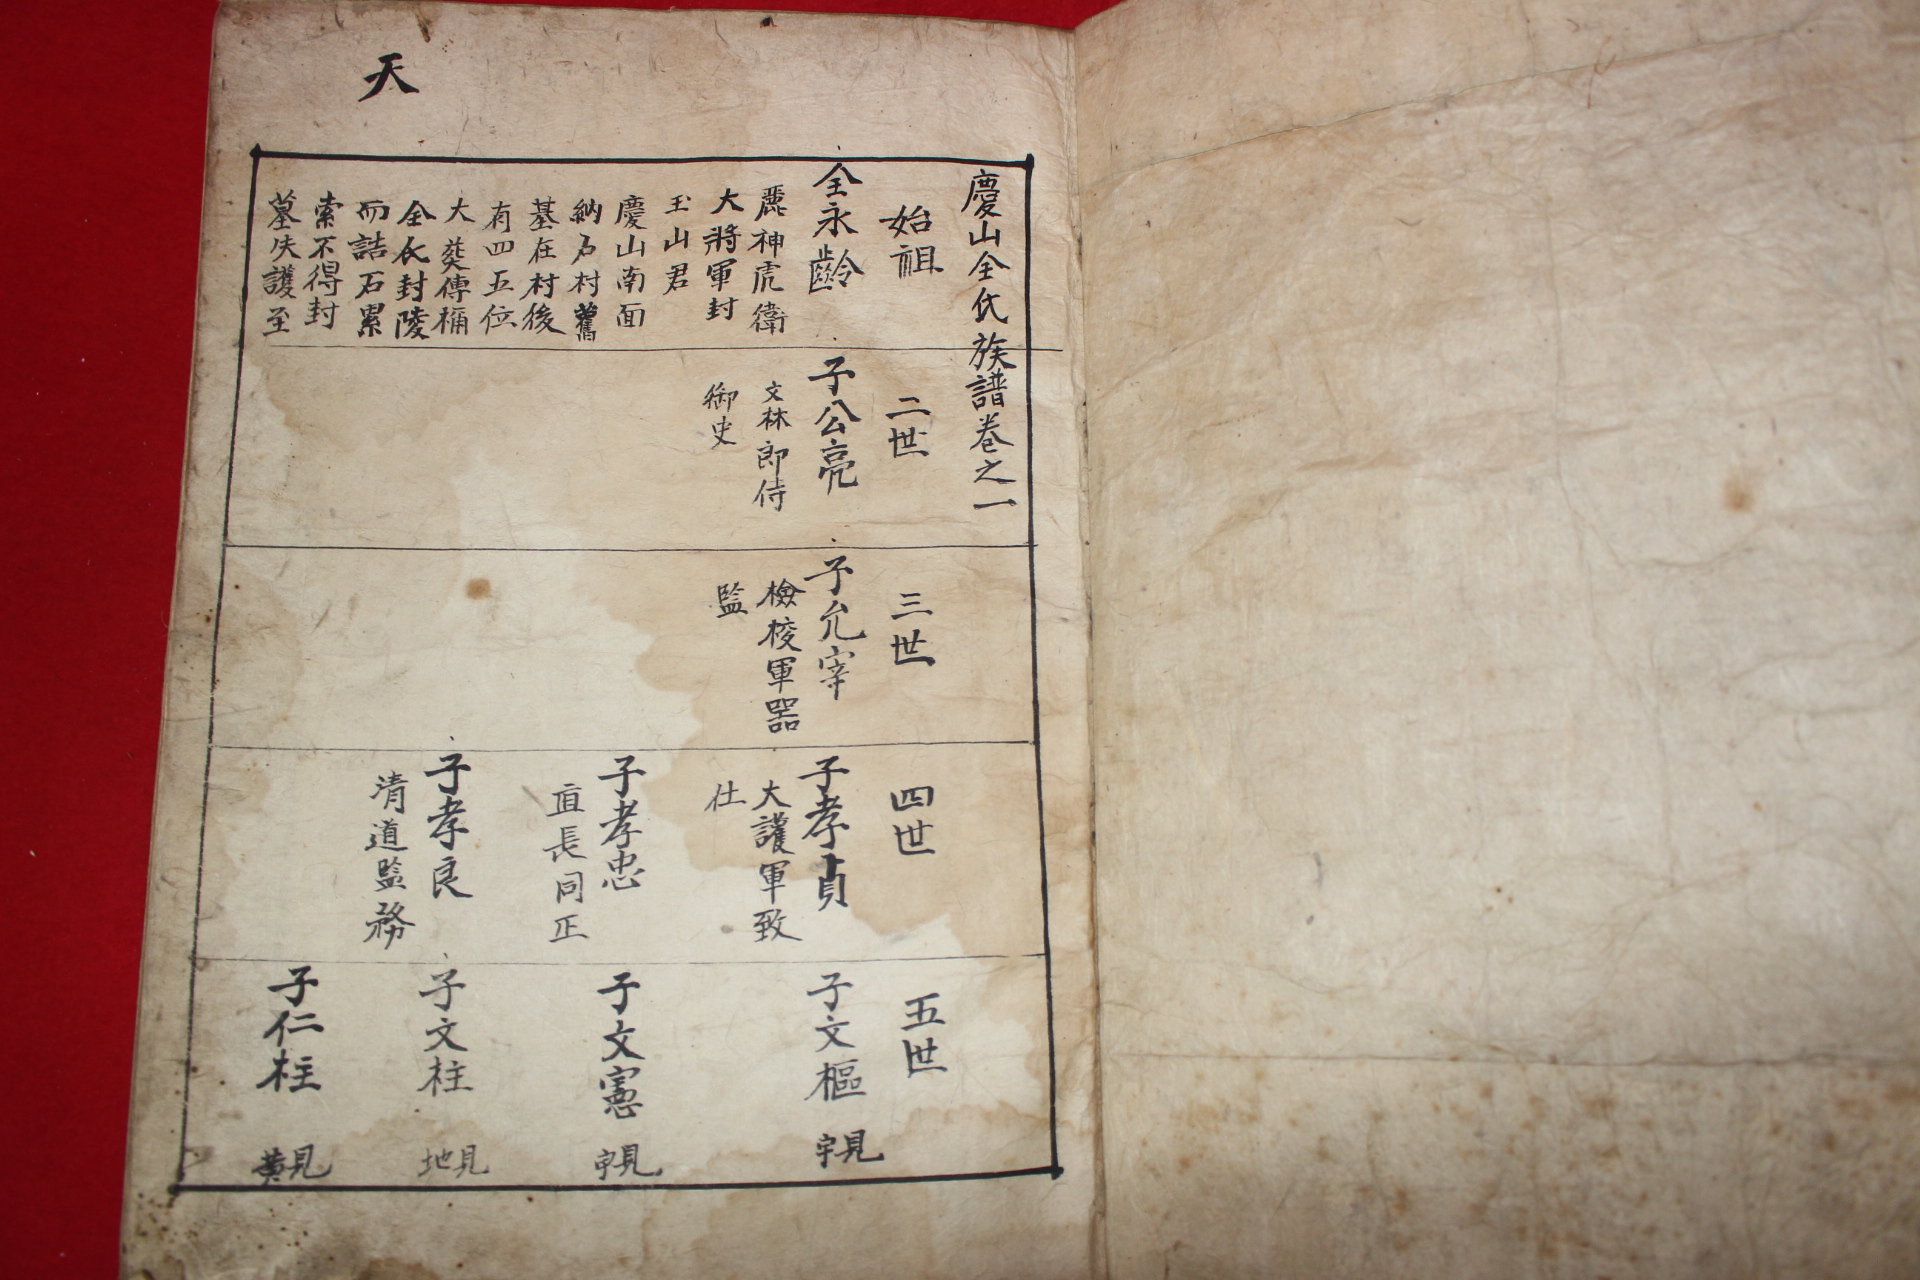 天
慶山全氏族譜卷之一
始祖
全永齡
麗神虎衛
大將軍封
玉山君
慶山南面
納石村舊
基在村後
有四五位
大塟傳稱
全氏封陵
而誌石累
索不得封
墓失護至
二世
子公亮
文林郎侍
御史
三世
子允宰
檢校軍器
監
四世
子孝貞
大護軍致
仕
子孝忠
直長同正
子孝良
清道監務
五世
子文樞
見宇
子文憲
見宇
子文柱
見地
子仁柱
見黃